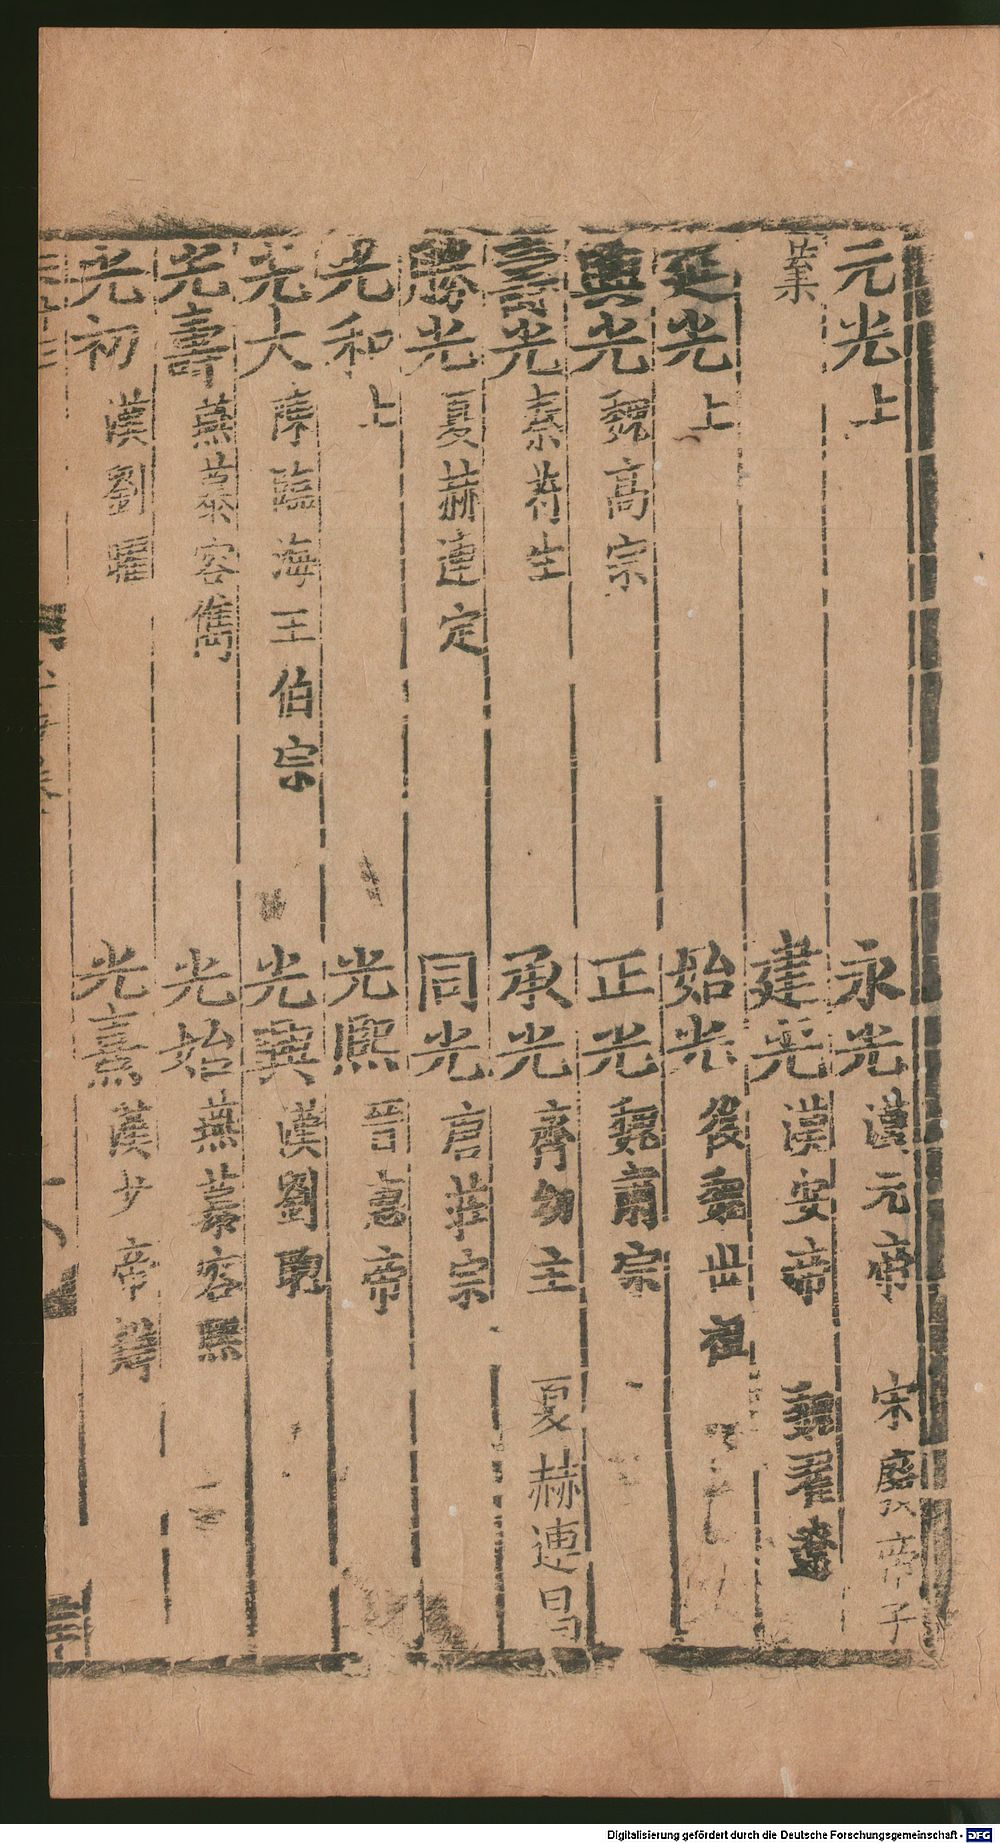 元光 上 永光 漢元帝 宋廢帝子
業 建光 漢安帝 魏翟遼
延光 上 始光 後魏世祖
興光 魏高宗 正光 魏肅宗
壽光 秦苻生 承光 齊幼主 夏赫連昌
勝光 夏赫連定 同光 唐莊宗
光和 上 光熙 晉惠帝
光大 陳臨海王伯宗 光興 漢劉聰
光壽 燕慕容雋 光始 燕慕容熙
光初 漢劉曜 光熹 漢少帝辯
Digitalisierung gefördert durch die Deutsche Forschungsgemeinschaft - DFG